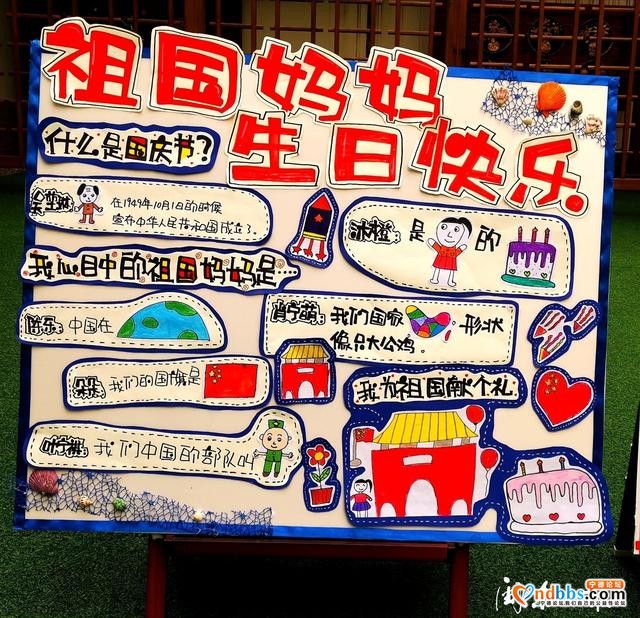 祖国妈妈
生日快乐
什么是国庆节?
在1949年10月1日的时候
宣布中华人民共和国成立了.
沐橙 是 的
我心目中的祖国妈妈是...
陈乐: 中国在
肖宁萌: 我们国家 形状
像只大公鸡.
朵朵: 我们的国旗是
我为祖国献个礼
我们中国的部队叫
ndbbs.com
宁德论坛